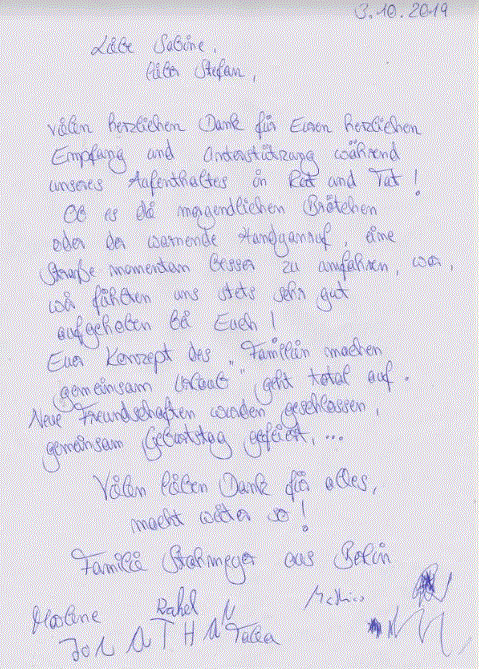 3.10.2019
Liebe Sabine,
lieber Stefan,
vielen herzlichen Dank für Euren herzlichen
Empfang und Unterstützung während
unseres Aufenthaltes in Rat und Tat!
Ob es die morgendlichen Brötchen
oder der warnende Handyanruf, eine
Straße momentan besser zu umfahren, war,
wir fühlten uns stets sehr gut
aufgehoben bei Euch!
Euer Konzept des „Familien machen
gemeinsam Urlaub" geht total auf.
Neue Freundschaften wurden geschlossen,
gemeinsam Geburtstag gefeiert, ...
Vielen lieben Dank für alles,
macht weiter so!
Familie Strohmeyer aus Berlin
Marlene Rahel
JONATHAN Talea